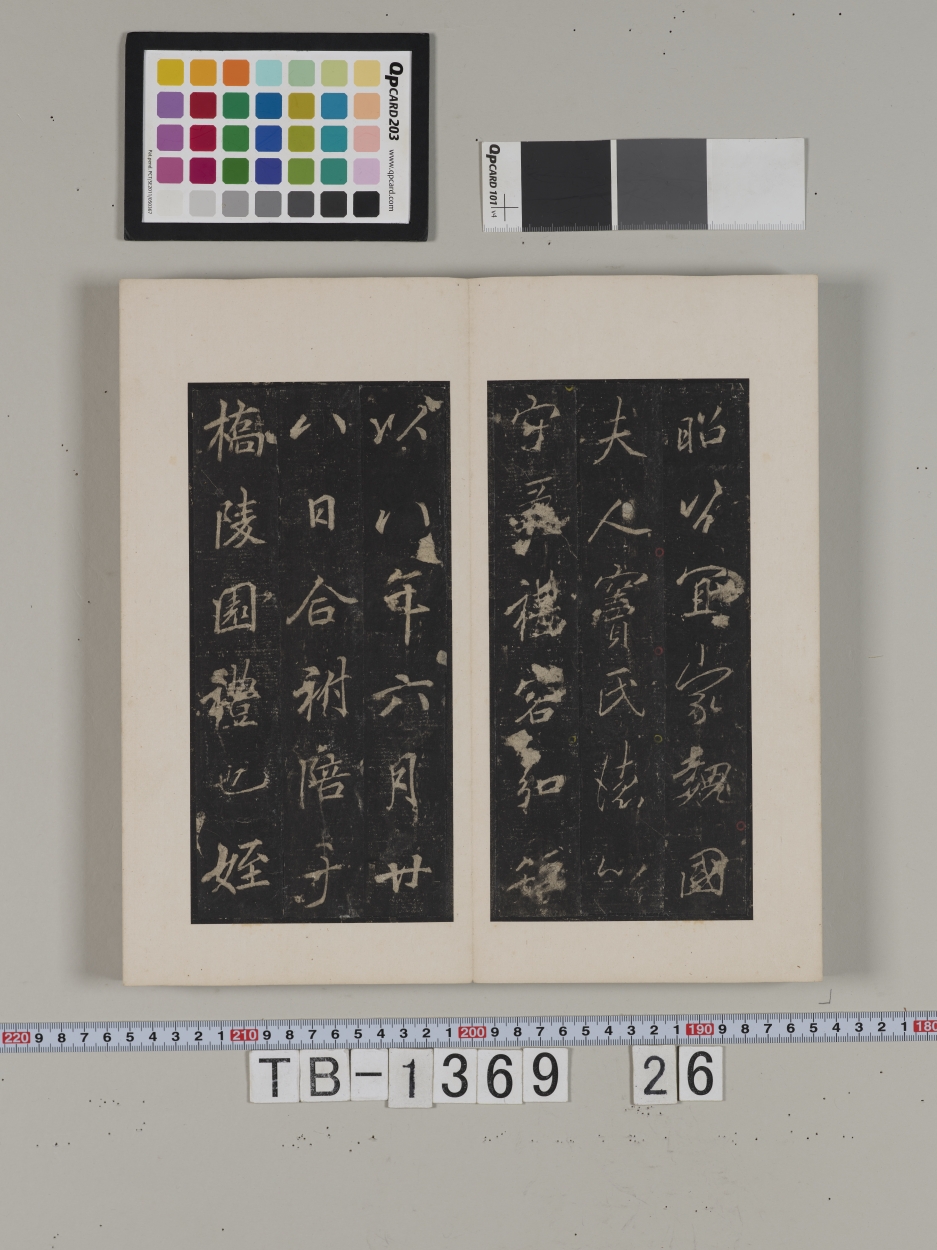 QpCARD 203 www.qpcard.com
QpCARD 101 v4
昭宜家魏國
夫人竇氏
守容和
以八年六月廿
八日合祔陪于
橋陵園禮也姪
220 9 8 7 6 5 4 3 2 1 210 9 8 7 6 5 4 3 2 1 200 9 8 7 6 5 4 3 2 1 190 9 8 7 6 5 4 3 2 1 180
TB-1369 26